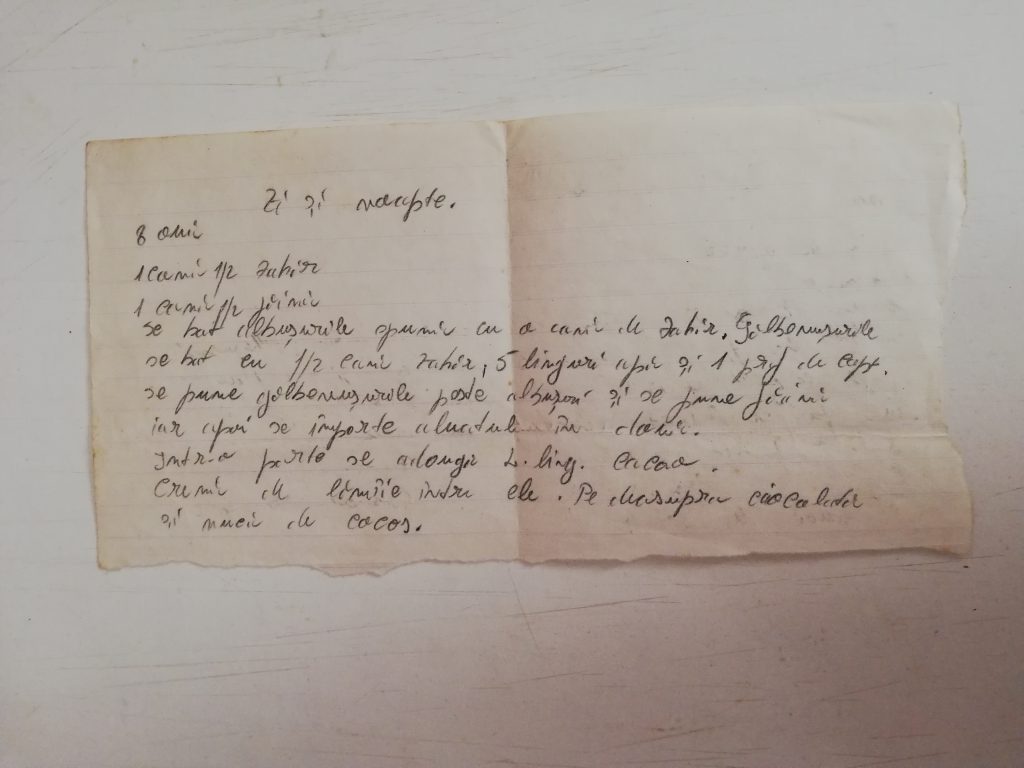 Zi și noapte.
8 ouă
1 cană 1/2 zahăr
1 cană 1/2 făină
se bat albușurile spumă cu o cană de zahăr. Gălbenușurile
se bat cu 1/2 cană zahăr, 5 linguri apă și 1 prf de copt.
se pune gălbenușurile peste albușuri și se pune făină
iar apoi se împarte aluatul în două.
Într-o parte se adaugă 2 ling. cacao.
Cremă de lămîie între ele. Pe deasupra ciocolată
și nucă de cocos.